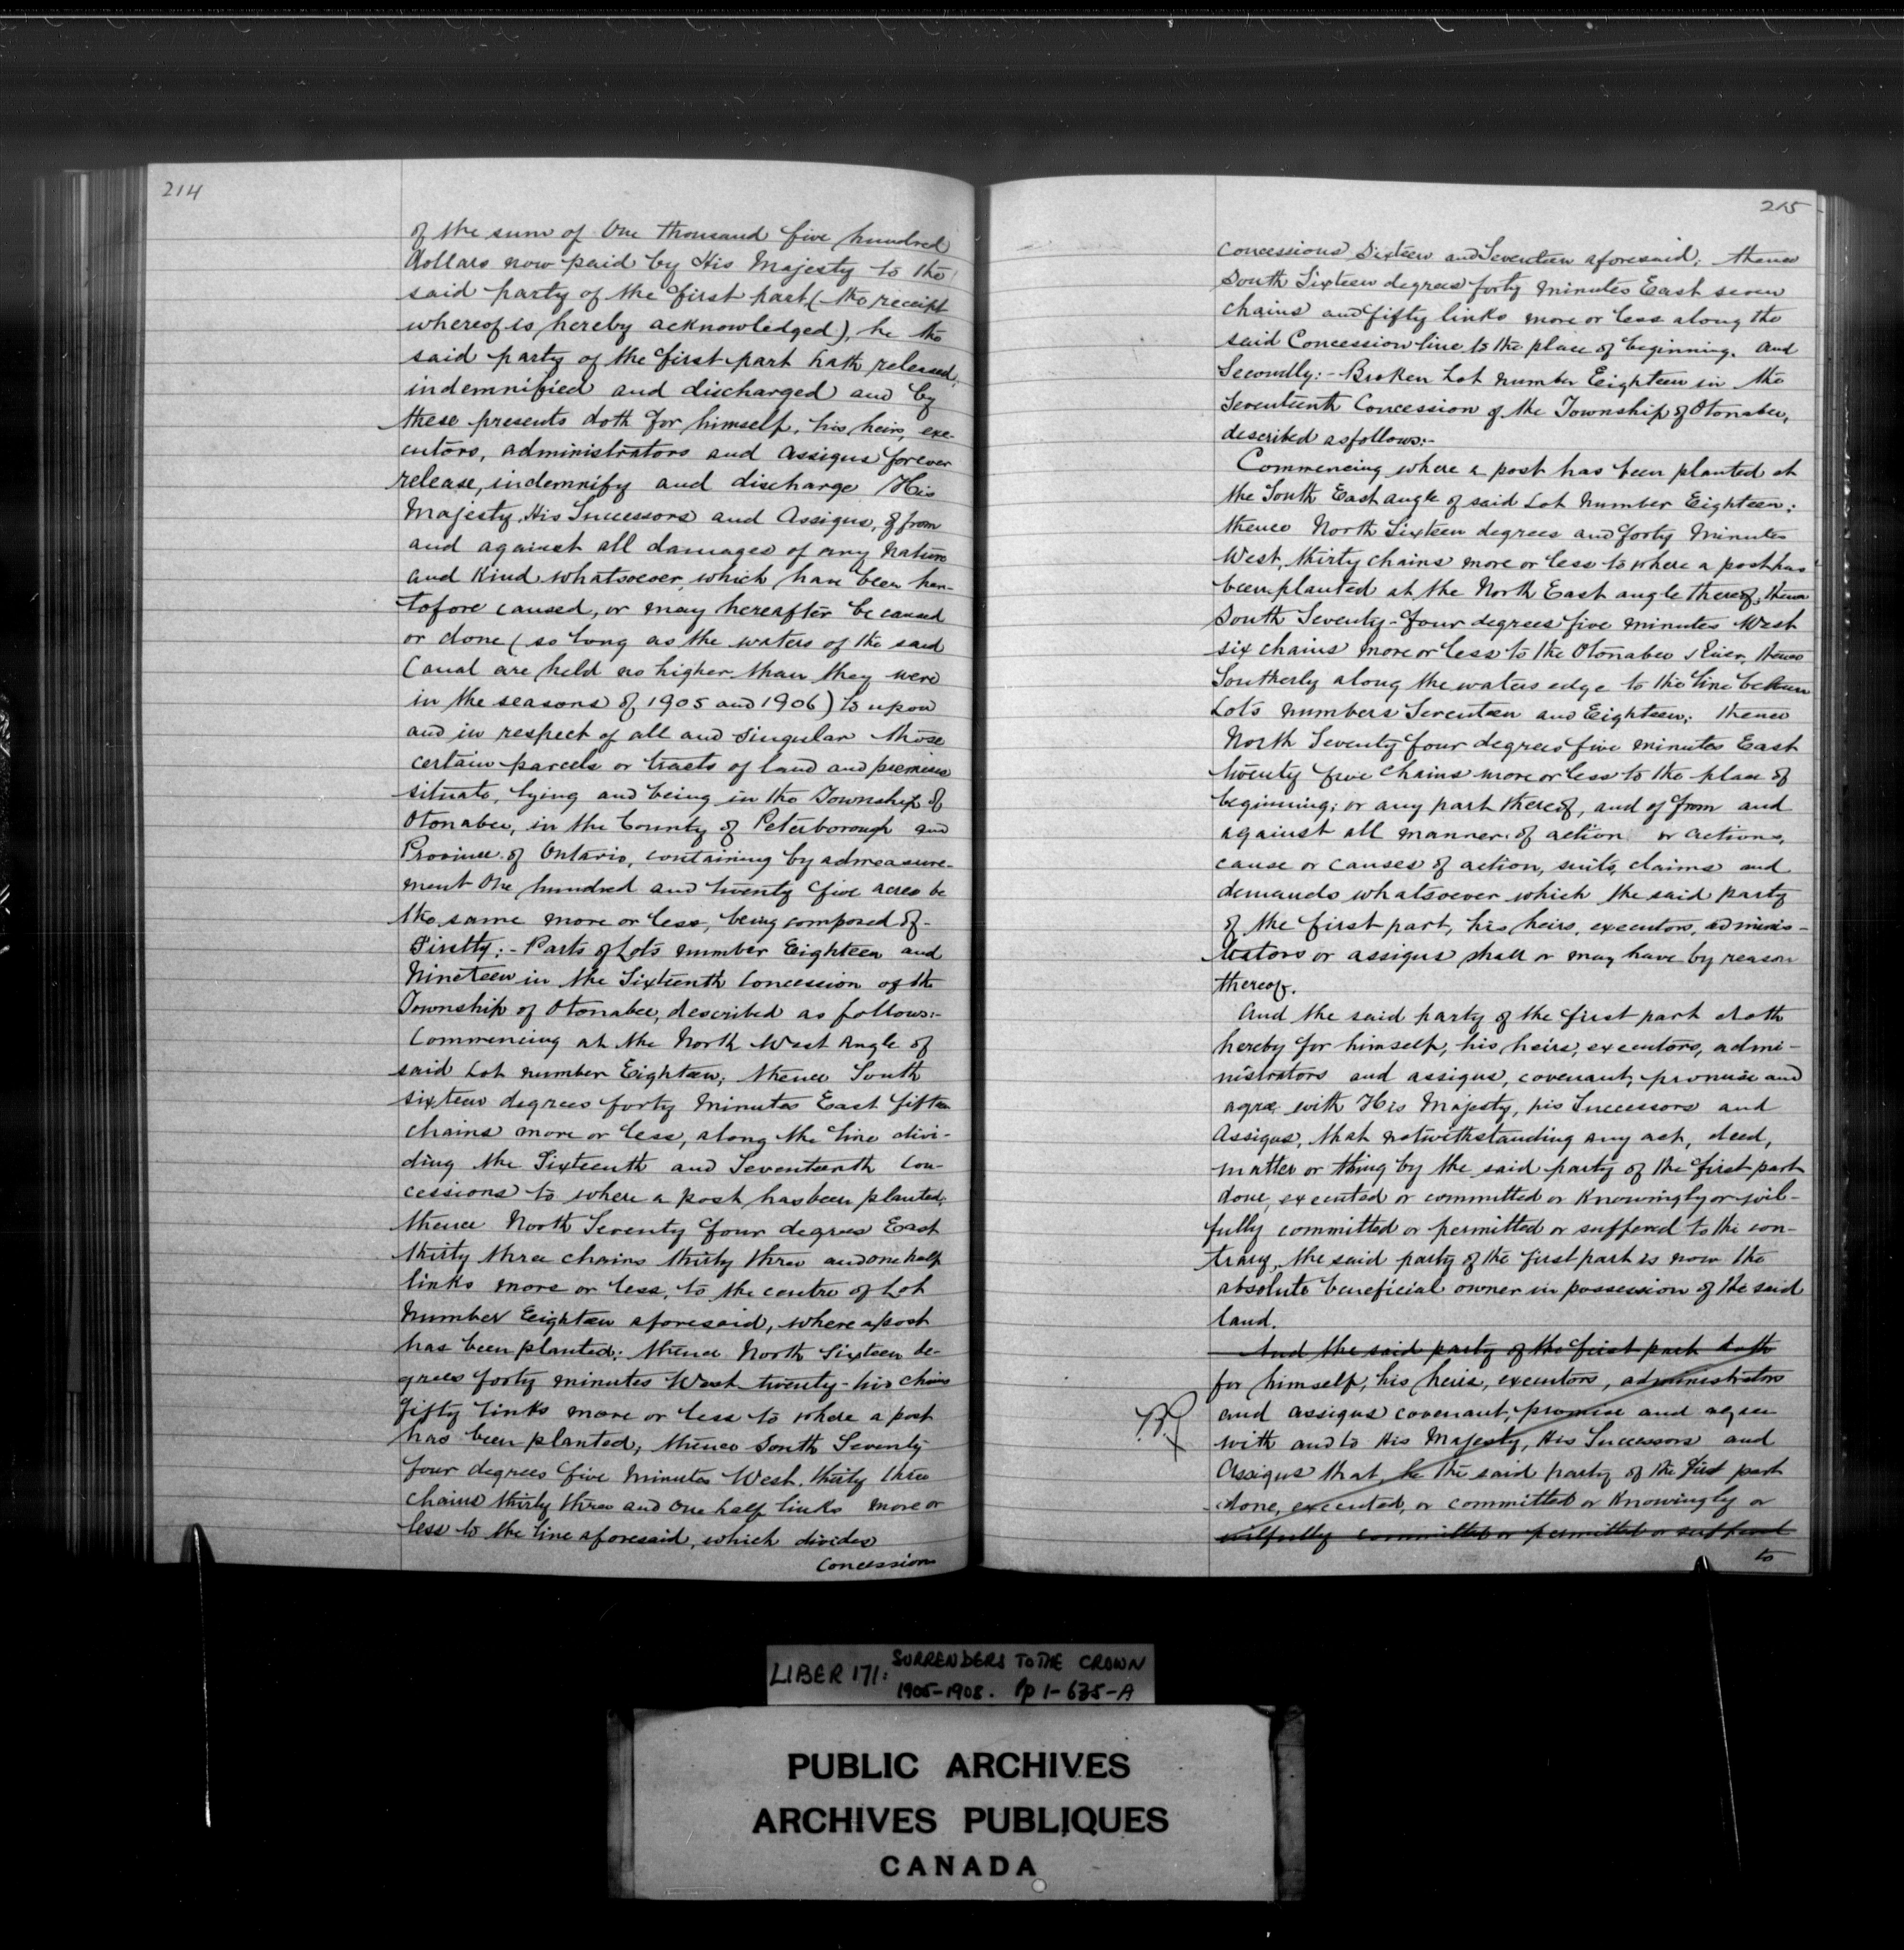 214
of the sum of One thousand five hundred
dollars now paid by His Majesty to the
said party of the first part (the receipt
whereof is hereby acknowledged), he the
said party of the first part hath released,
indemnified and discharged and by
these presents doth for himself, his heirs, exe-
cutors, administrators and assigns forever
release, indemnify and discharge His
Majesty, His Successors and Assigns, of from
and against all damages of any nature
and kind whatsoever, which have been her-
tofore caused, or may hereafter be caused
or done (so long as the waters of the said
Canal are held no higher than they were
in the seasons of 1905 and 1906) to upon
and in respect of all and singular those
certain parcels or tracts of land and premises
situate, lying and being in the Township of
Otonabee, in the County of Peterborough and
Province of Ontario, containing by admeasure-
ment One hundred and twenty five acres be
the same more or less, being composed of-
Firstly:- Parts of Lots number Eighteen and
Nineteen in the Sixteenth Concession of the
Township of Otonabee, described as follows:-
Commencing at the North West Angle of
said Lot number Eighteen; thence South
sixteen degrees forty minutes East fifteen
chains more or less, along the line divi-
ding the Sixteenth and Seventeenth Con-
cessions to where a post has been planted;
thence North Seventy four degrees East
thirty three chains thirty three and one half
links more or less, to the centre of Lot
Number Eighteen aforesaid, where a post
has been planted; thence North Sixteen de-
grees forty minutes West twenty-two chains
fifty links more or less to where a post
has been planted; thence South Seventy
four degrees five minutes West, thirty three
chains thirty three and one half links more or
less to the line aforesaid, which divides
Concessions
215
concessions Sixteen and Seventeen aforesaid; thence
South Sixteen degrees forty minutes East seven
chains and fifty links more or less along the
said Concession line to the place of beginning. and
Secondly:- Broken Lot number Eighteen in the
Seventeenth Concession of the Township of Otonabee,
described as follows:-
Commencing where a post has been planted at
the South East angle of said Lot Number Eighteen;
thence North Sixteen degrees and forty minutes
West, thirty chains more or less to where a post has
been planted at the North East angle thereof; thence
South Seventy-four degrees five minutes West
six chains more or less to the Otonabee River, thence
Southerly along the waters edge to the line between
Lots numbers Seventeen and Eighteen; thence
North Seventy four degrees five minutes East
twenty five chains more or less to the place of
beginning; or any part thereof, and of from and
against all manner of action or actions,
cause or causes of action, suits, claims and
demands whatsoever which the said party
of the first part, his heirs, executors, adminis-
trators or assigns shall or may have by reason
thereof.
And the said party of the first part doth
hereby for himself, his heirs, executors, admi-
nistrators and assigns, covenant, promise and
agree with His Majesty, his Successors and
Assigns, that notwithstanding any act, deed,
matter or thing by the said party of the first part
done, executed or committed or knowingly or wil-
fully committed or permitted or suffered to the con-
trary, the said party of the first part is now the
absolute beneficial owner in possession of the said
land.
And the said party of the first part doth
for himself, his heirs, executors, administrators
and assigns covenant, promise and agree
with and to His Majesty, His Successors and
Assigns that he the said party of the first part
done, executed, or committed or knowingly or
wilfully committed or permitted or suffered
to
LIBER 171: SURRENDERS TO THE CROWN
1905-1908. Pp 1-635-A
PUBLIC ARCHIVES
ARCHIVES PUBLIQUES
CANADA